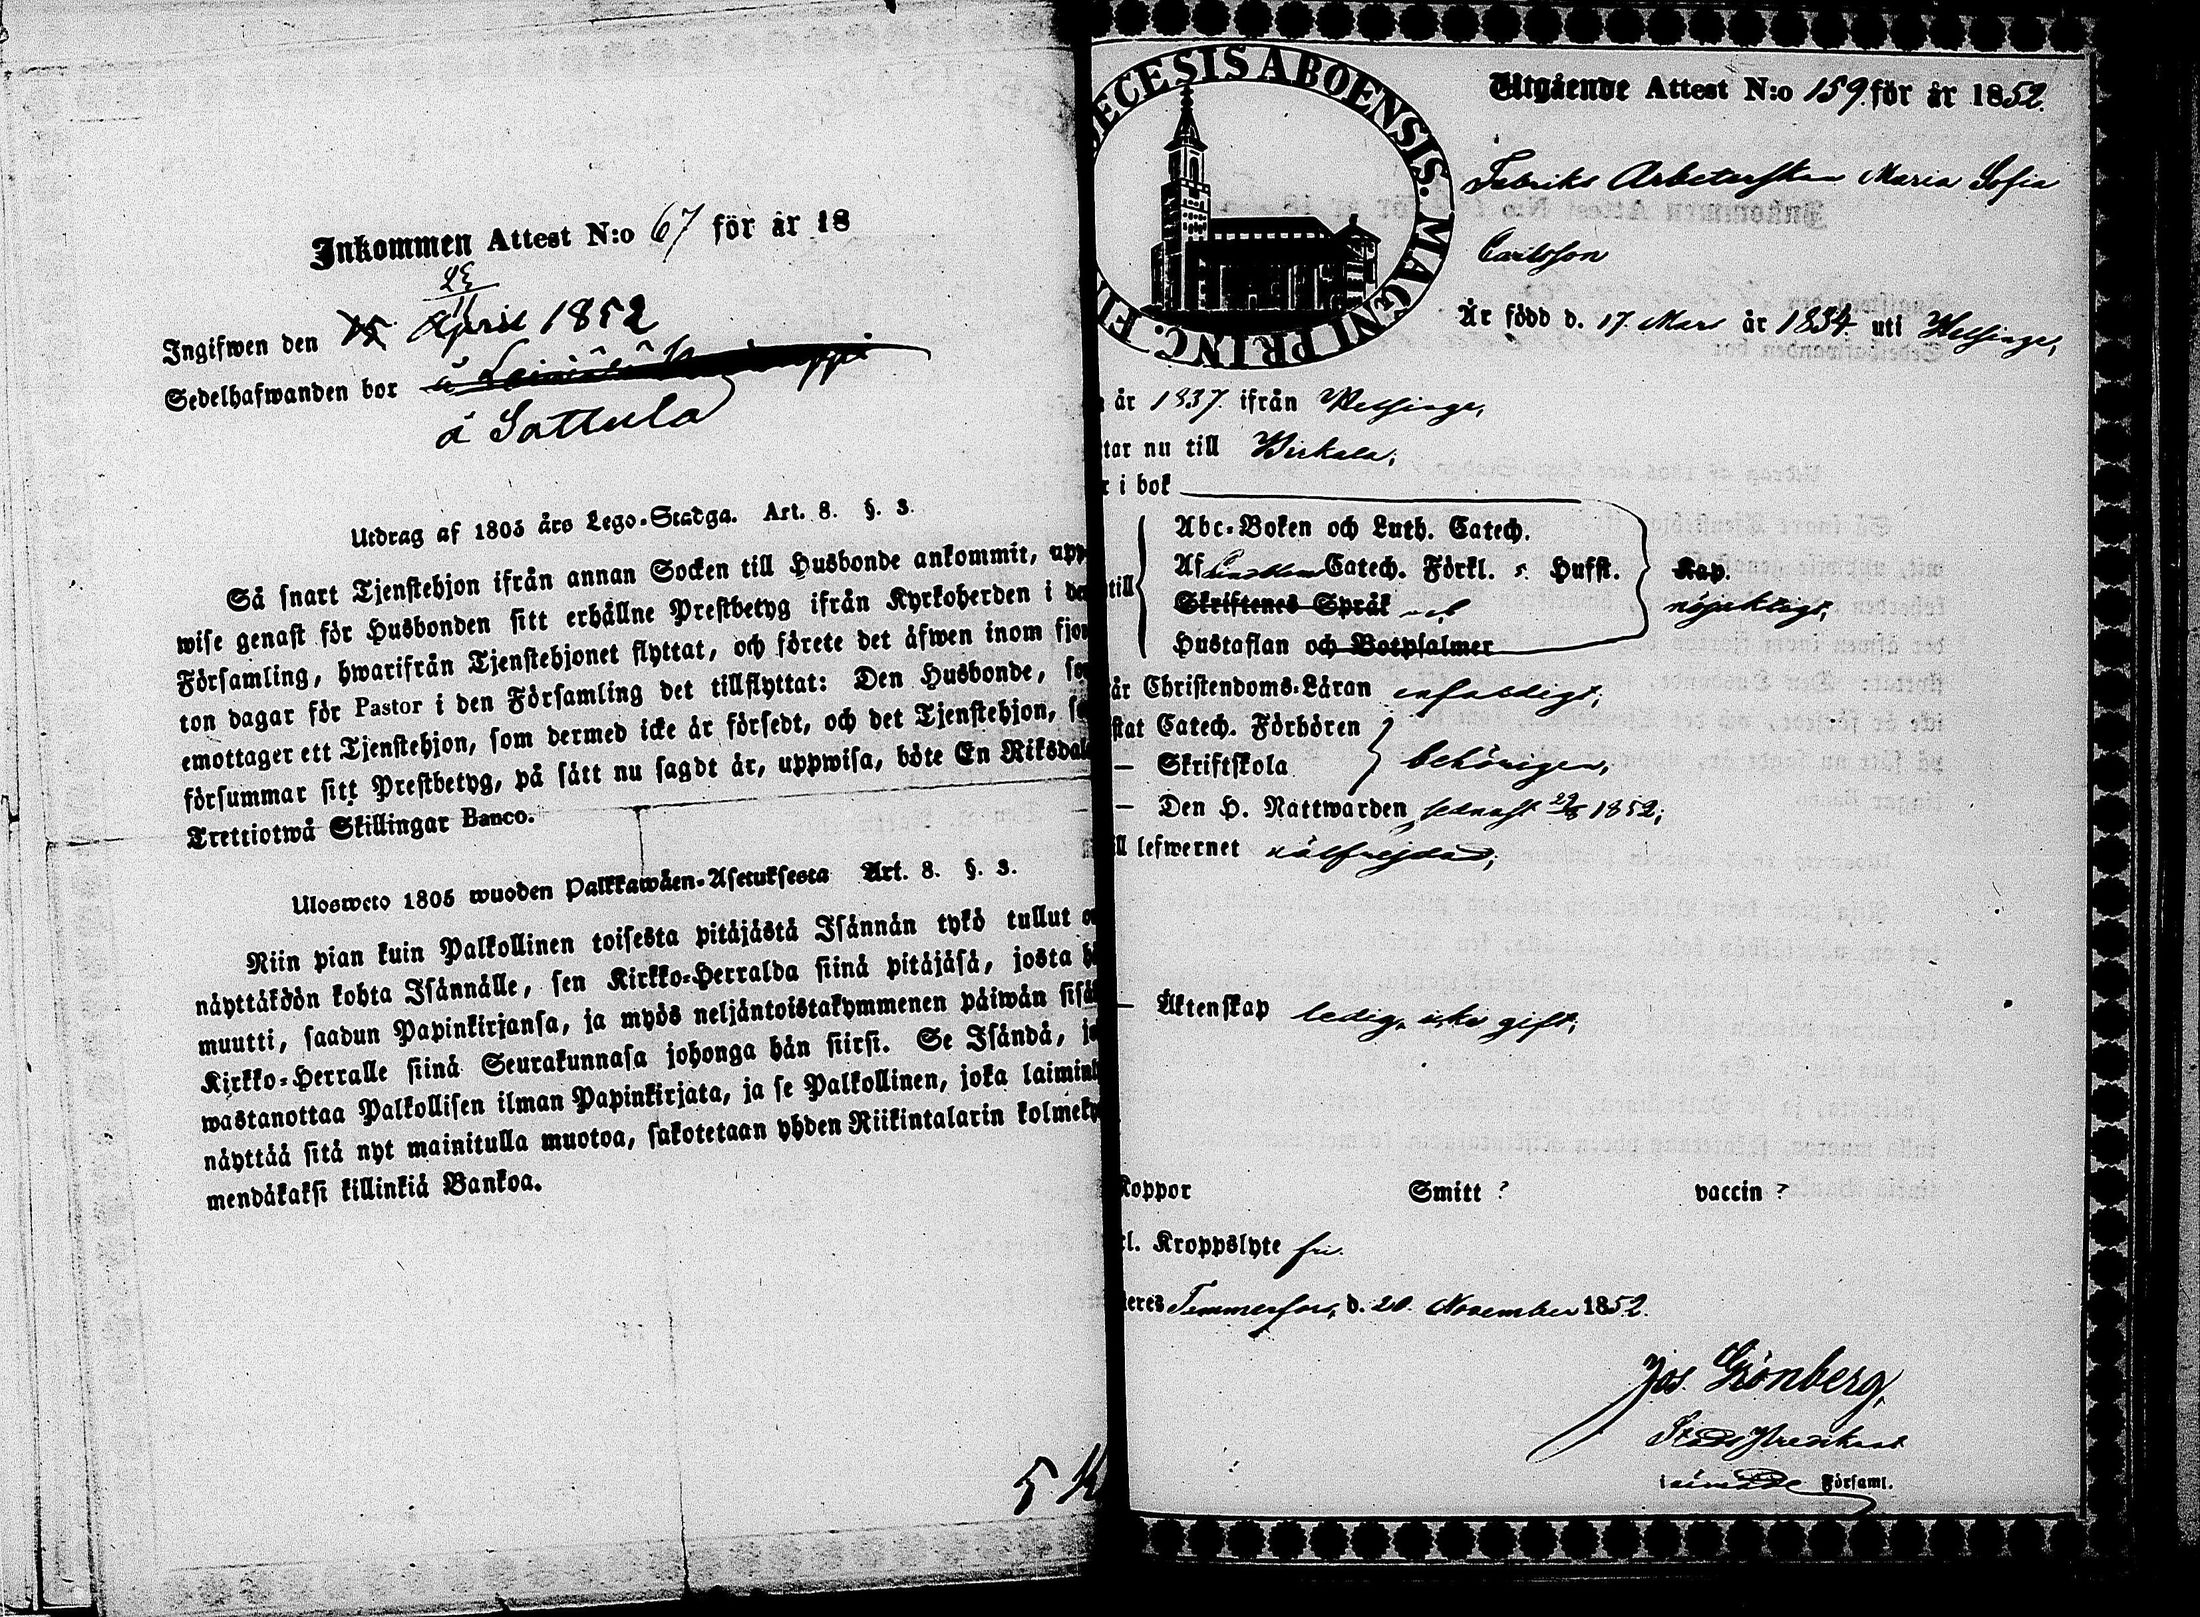 Inkommen Attest N:o 67 för år 18
Ingifwen den April 1852
Sedelhafwanden bor
å Sattula
Utdrag af 1805 års Lego-Stadga. Art. 8. §. 3.
Så snart Tjenstehjon ifrån annan Socken till Husbonde ankommit, upp
wise genast för Husbonden sitt erhållne Prestbetyg ifrån Kyrkoherden i de
Församling, hwarifrån Tjenstehjonet flyttat, och förete det åfwen inom fjor
ton dagar för Pastor i den Församling det tillflyttat: Den Husbonde, so
emottager ett Tjenstehjon, som dermed icke är försedt, och det Tjenstehjon, s
försummar sitt Prestbetyg, på sätt nu sagdt är, uppwisa, böte En Riksdal
Trettiotwå Skillingar Banco.
Ulosweto 1805 wuoden Palkkawäen-Asetuksesta Art. 8. §. 3.
Niin pian kuin Palkollinen toisesta pitäjästä Isännän tykö tullut o
näyttäköön kohta Isännälle, sen Kirkko-Herralda siinä pitäjäsä, josta h
muutti, saadun Papinkirjansa, ja myös neljäntoistakymmenen päiwän sisä
Kirkko-Herralle siinä Seurakunnasa johonga hän siirsi. Se Isändä, jo
wastanottaa Palkollisen ilman Papinkirjata, ja se Palkollinen, joka laimin
näyttää sitä nyt mainitulla muotoa, sakotetaan yhden Riikintalarin kolmeky
mendäkaksi killinkiä Bankoa.
5
ECESIS ABOENSIS. MAGNI PRINC. FI
Utgående Attest N:o 159 för år 1852.
Fabriks Arbeterskan Maria Sofia
Carlsson
Är född d. 17. Mars år 1834 uti Messinge,
år 1837. ifrån Messinge,
tar nu till Birkala;
r i bok
Abc-Boken och Luth. Catech.
Af Catech. Förkl. Husst. Kap.
till Skriftenes Språk och nöjaktigt;
Hustaflan och Botpsalmer
år Christendoms-Läran enfaldigt;
stat Catech. Förhören
— Skriftskola behörigen,
— Den H. Nattwarden sednast 29/8 1852;
ll lefwernet wälfrejdad;
— Äktenskap ledig, icke gift;
Koppor Smitt ? vaccin ?
l. Kroppslyte fri.
eres Tammerfors, d. 20. November 1852.
Jos. Grönberg,
Stads Predikant
i Församl.